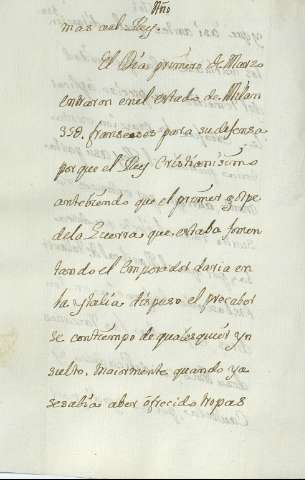 mas œl Rey.
El Dia primero de Marzo
entraron en el estado de Milan
35U. franceses para su defensa
porque el Rey Cristianisimo
antebiendo que el primer golpe
dela Guerra que estaba fomen
tando el Emperador daria en
la ytalia dispuso el precaber
se con tiempo de qualesquier yn
sulto, maiormente quando ya
se sabia aber ofrecido tropas